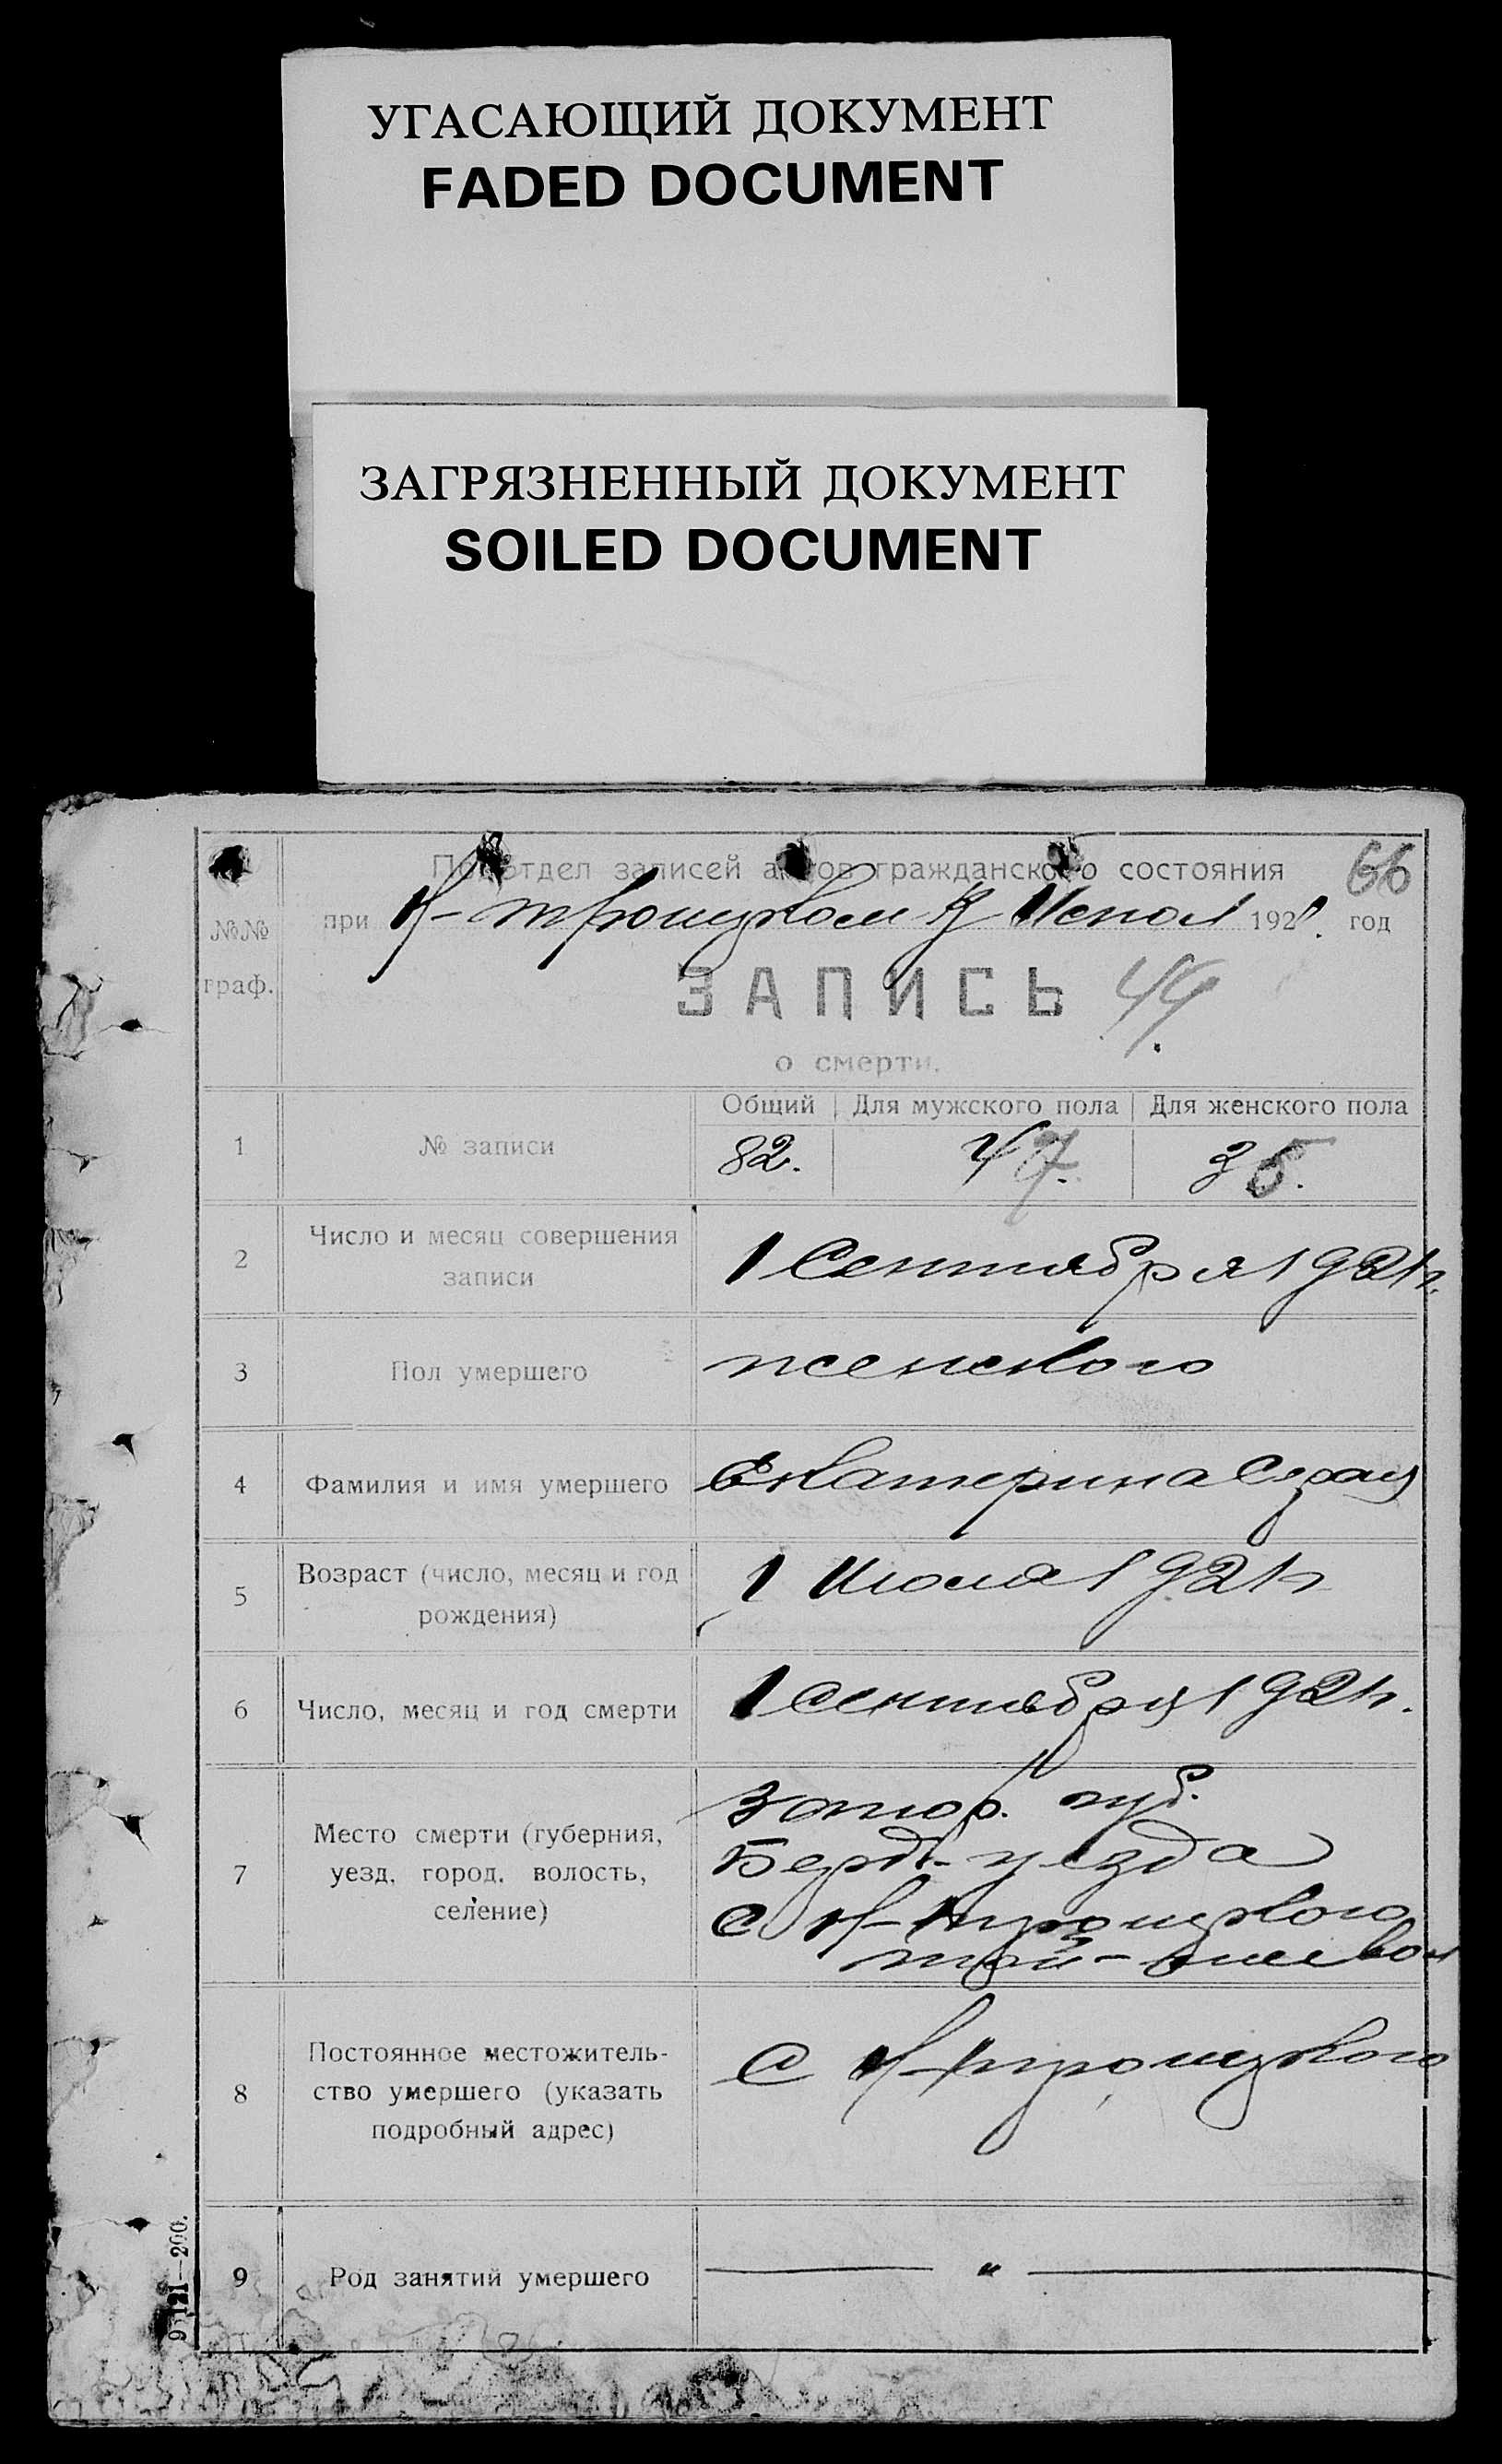 УГАСАЮЩИЙ ДОКУМЕНТ
FADED DOCUMENT
ЗАГРЯЗНЕННЫЙ ДОКУМЕНТ
SOILED DOCUMENT
Подотдел записей актов гражданского состояния 66
№№ граф. при Н-троицком В Испол 1921. год
ЗАПИСЬ 44.
о смерти.
Общий Для мужского пола Для женского пола
1 № записи 82. 47. 35.
2 Число и месяц совершения
записи 1 Сентября 1921 г.
3 Пол умершего женского
4 Фамилия и имя умершего Екатерина
5 Возраст (число, месяц и год
рождения) 1 Июля 1921 г
6 Число, месяц и год смерти 1 сентября 1921 г.
7 Место смерти (губерния,
уезд, город, волость,
селение) Запор. губ.
Берд- уезда
С Н-троицкого
той-же вол
8 Постоянное местожитель-
ство умершего (указать
подробный адрес) С Н-троицкого
9 Род занятий умершего — " —
9121—200.